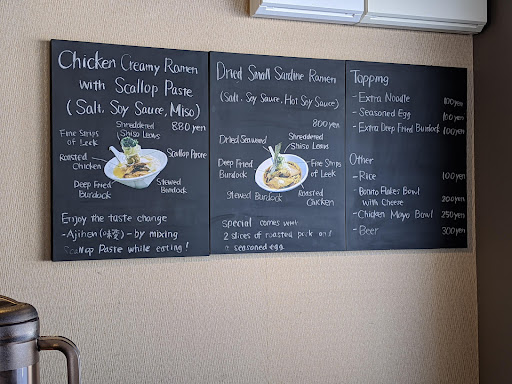 Chicken Creamy Ramen
with Scallop Paste
(Salt, Soy Sauce, Miso)
880 yen
Shreddered
Shiso Leaves
Fine Strips
of Leek
Scallop Paste
Roasted
Chicken
Deep Fried
Burdock
Stewed
Burdock
Enjoy the taste change
-Ajihen (味変) - by mixing
Scallop Paste while eating!
Dried Small Sardine Ramen
(Salt, Soy Sauce, Hot Soy Sauce)
800 yen
Dried Seaweed
Shreddered
Shiso Leaves
Deep Fried
Burdock
Fine Strips
of Leek
Stewed Burdock
Roasted
Chicken
Special comes with
2 slices of roasted pork and
a seasoned egg
Topping
- Extra Noodle 100yen
- Seasoned Egg 100yen
- Extra Deep Fried Burdock 100yen
Other
- Rice 100yen
- Bonito Flakes Bowl
with Cheese 200yen
- Chicken Mayo Bowl 250yen
- Beer 300yen